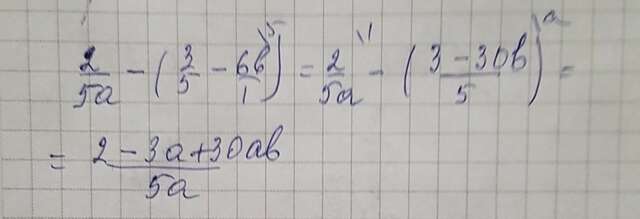 2/5a - (3/5 - 6b/1 \5) = 2/5a \1 - (3 - 30b/5) \a =
= 2 - 3a + 30ab/5a